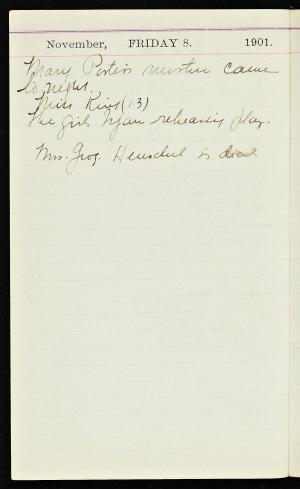 November, FRIDAY 8. 1901.
Mary Porter's mother came
to night.
Miss King (13)
The girls began rehearsing play.
Mrs. Geo. Henschel is dead